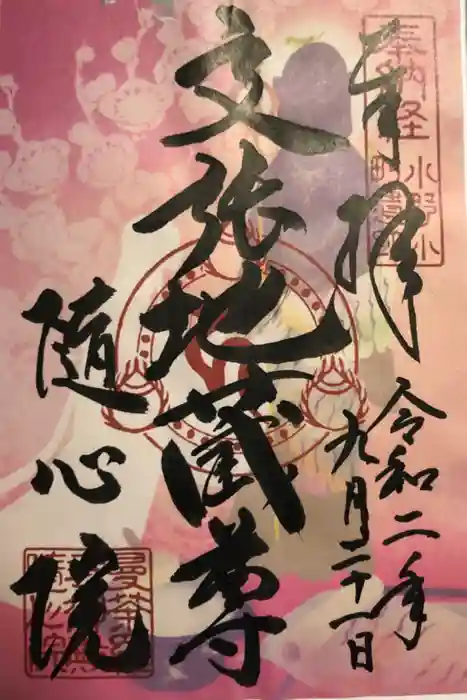 奉拝
令和二年
九月二十一日
文張地蔵尊
随心院
奉納経
小野小
町遺跡